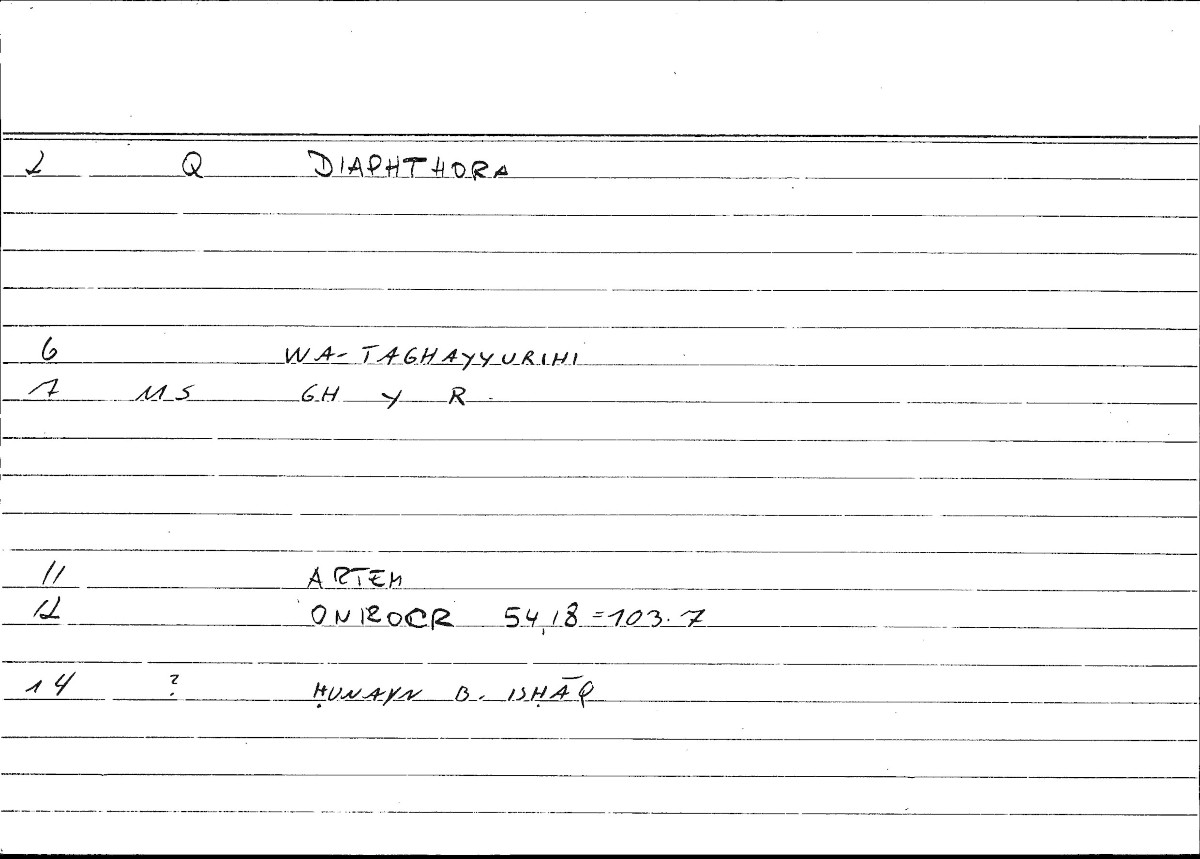 2 Q DIAPHTHORA
6 WA-TAGHAYYURIHI
7 MS GH Y R
11 ARTEM
12 ONIROCR 54,18=103.7
14 ? ḤUNAYN B. ISḤĀQ